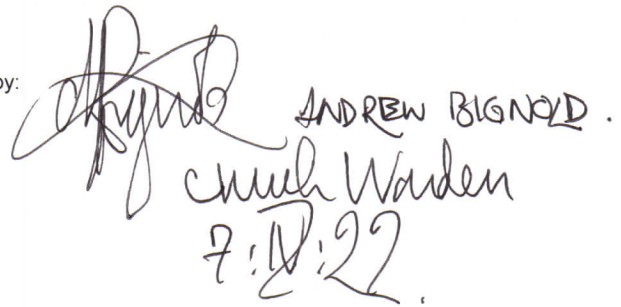 by:
ANDREW BIGNOLD.
Church Warden
7:IV:22